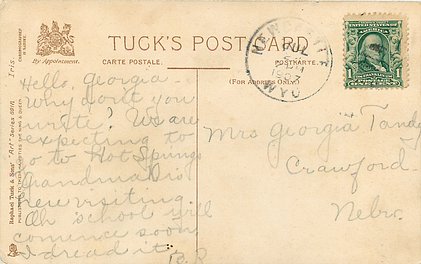 TUCK'S POSTCARD
CARTE POSTALE.
POSTKARTE.
(FOR ADDRESS ONLY.)
By Appointment.
Raphael Tuck & Sons' "Art" Series
NEWCASTLE
WYO.
1
Hello, Georgia
Why don't you
write? We are
expecting to
go to Hot Springs
Grandma is
here visiting.
Oh school will
comence soon
I dread it.
B.R
Mrs Georgia Tandy
Crawford
Nebr.